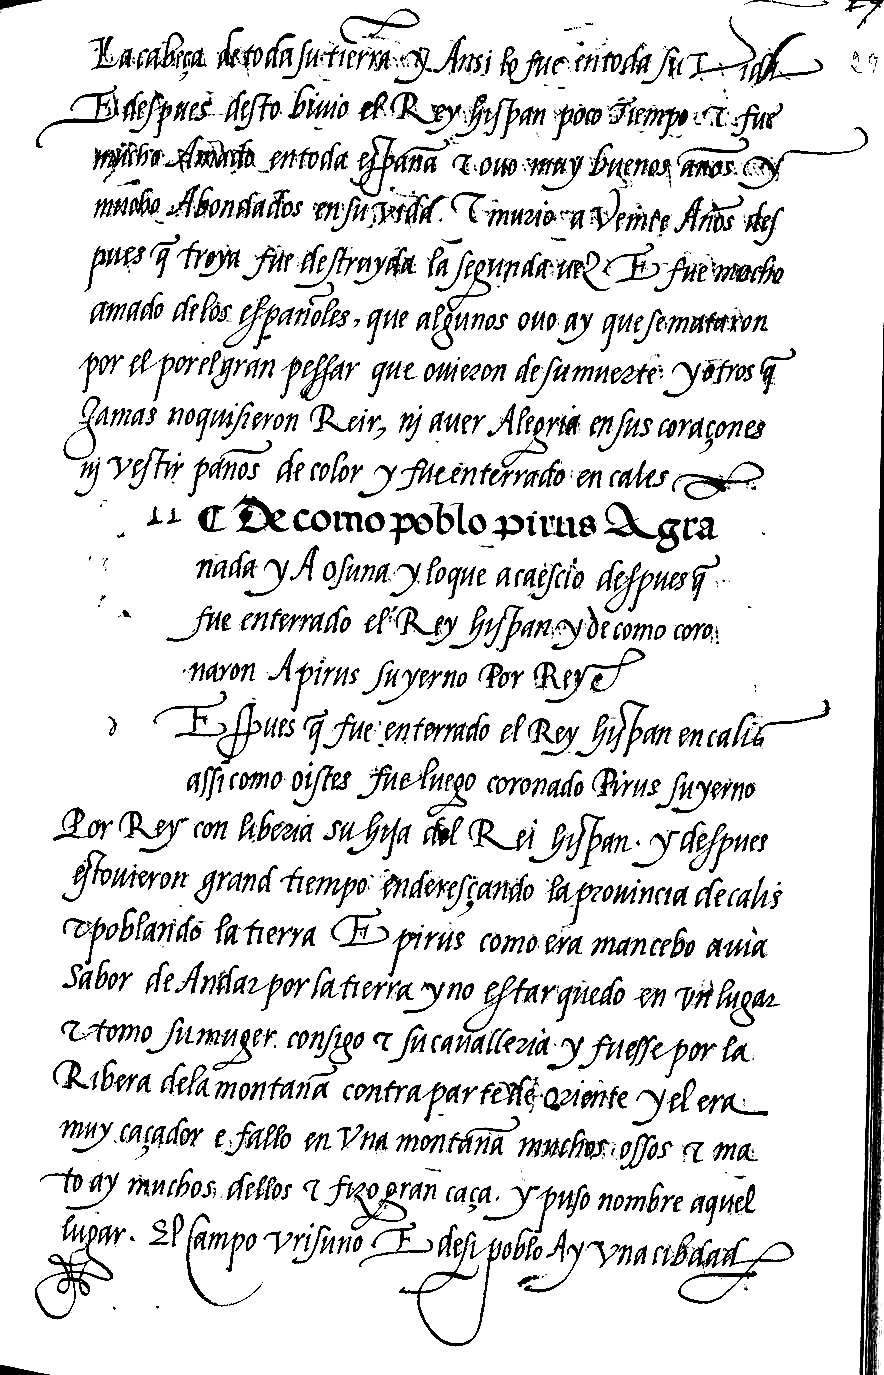 La cabeça de toda su tierra y Ansi lo fue en toda su vida
E despues desto biuio el Rey hispan poco Tiempo τ fue
mucho Amado en toda espana τ ouo muy buenos años y
mucho Abondados en su vida. τ murio a Veinte Años des
pues q̃ troya fue destruyda la segunda uez E fue mucho
amado delos españoles, que algunos ouo ay que se mataron
por el por el gran pessar que ouieron de su muerte y otros q̃
Jamas no quisieron Reir, nj auer Alegria en sus coraçones
nj vestir paños de color y fue enterrado en cales
11 ¶ De como poblo pirus A gra
nada y A osuna y lo que acaescio despues q̃
fue enterrado el Rey hispan y de como coro
naron A pirus su yerno Por Rey
d ESpues q̃ fue enterrado el Rey hispan en calis
assi como oistes fue luego coronado Pirus su yerno
Por Rey con liberia su hija del Rei hispan. y despues
estouieron grand tiempo enderesçando la prouincia de calis
τ poblando la tierra E pirus como era mancebo auia
sabor de Andar por la tierra y no estar quedo en vn lugar
τ tomo su muger consigo τ su caualleria y fuesse por la
Ribera dela montaña contra parte de oriente y el era
muy caçador e fallo en vna montaña muchos ossos τ ma
to ay muchos dellos τ fizo gran caça. y puso nombre aquel
lugar. El campo vrisuno E desi poblo Ay vna cibdad